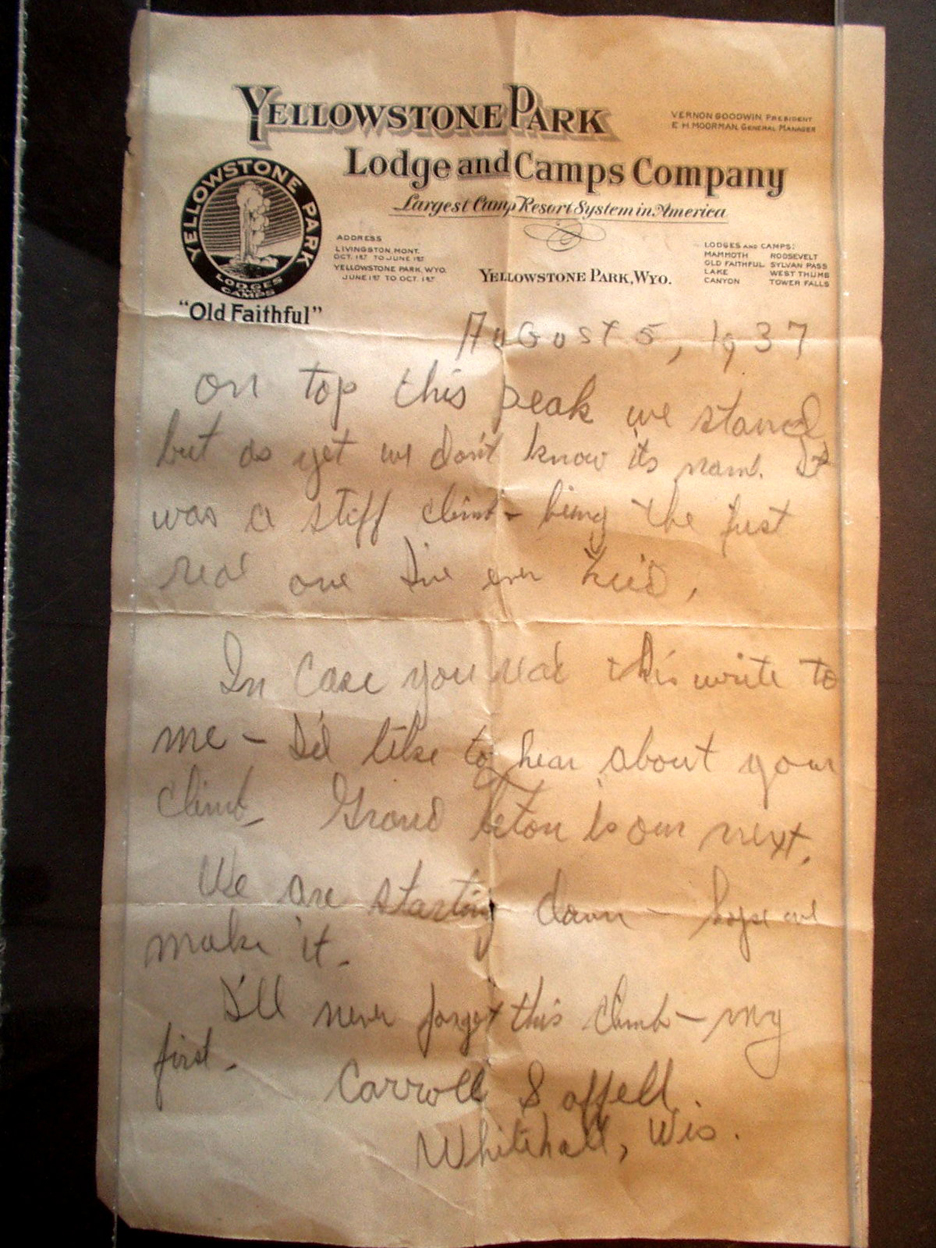 YELLOWSTONE PARK
VERNON GOODWIN, PRESIDENT
E. H. MOORMAN, GENERAL MANAGER
Lodge and Camps Company
Largest Camp Resort System in America
YELLOWSTONE PARK
LODGES AND CAMPS
"Old Faithful"
ADDRESS
LIVINGSTON, MONT.
OCT. 1ST TO JUNE 1ST
YELLOWSTONE PARK, WYO.
JUNE 1ST TO OCT. 1ST
YELLOWSTONE PARK, WYO.
LODGES AND CAMPS:
MAMMOTH ROOSEVELT
OLD FAITHFUL SYLVAN PASS
LAKE WEST THUMB
CANYON TOWER FALLS
August 5, 1937
On top this peak we stand
but as yet we don't know its name. It
was a stiff climb - being the first
real one I've ever tried.
In case you read this write to
me - I'd like to hear about your
climb. Grand Teton is our next.
We are starting down - hope we
make it.
I'll never forget this climb - my
first.
Carroll Saffell.
Whitehall, Wis.